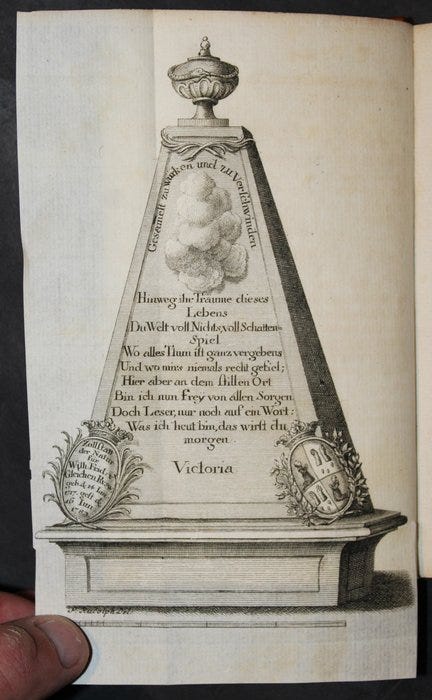 Gesamelt zu wirken und zu Verschwinden
Hinweg ihr Träume dieses
Lebens
Du Welt voll Nichts, voll Schatten-
Spiel
Wo alles Thun ist ganz vergebens
Und wo mirs niemals recht gefiel;
Hier aber an dem stillen Ort
Bin ich nun frey von allen Sorgen
Doch Leser, nur noch auf ein Wort:
Was ich heut bin, das wirst du
morgen.
Victoria
Zollstatt
der Natur
für
Wilh. Frid.
Gleichen
geb. d. 14
1717. gest. d.
16 Jun.
1783
Rudolph Del.